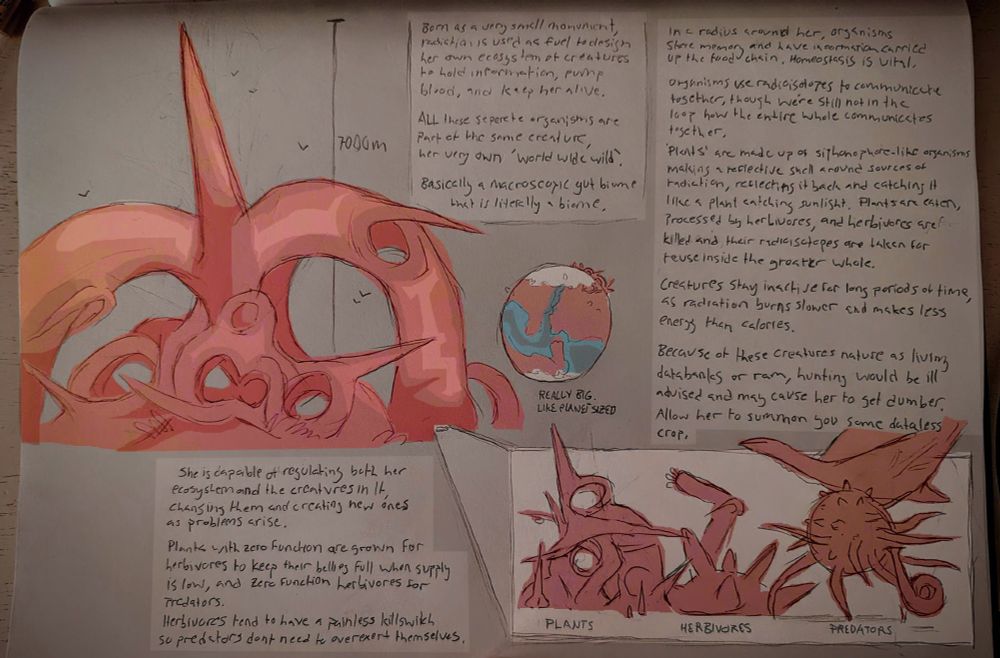 Born as a very small monument,
radiation is used as fuel to design
her own ecosystem of creatures
to hold information, pump
blood, and keep her alive.
ALL these seperate organisms are
part of the same creature,
her very own 'world wide wild'.
Basically a macroscopic gut biome
that is literally a biome.
7000m
In a radius around her, organisms
share memory and have information carried
up the food chain. Homeostasis is vital.
Organisms use radioisotopes to communicate
together, though we're still not in the
loop how the entire whole communicates
together.
'Plants' are made up of siphonophore-like organisms
making a reflective shell around sources of
radiation, reflecting it back and catching it
like a plant catching sunlight. Plants are eaten,
processed by herbivores, and herbivores are
killed and their radioisotopes are taken for
reuse inside the greater whole.
Creatures stay inactive for long periods of time,
as radiation burns slower and makes less
energy than calories.
Because of these creatures nature as living
databanks or ram, hunting would be ill
advised and may cause her to get dumber.
Allow her to summon you some dataless
crop.
REALLY BIG.
LIKE PLANET SIZED
She is capable of regulating both her
ecosystem and the creatures in it,
changing them and creating new ones
as problems arise.
Plants with zero function are grown for
herbivores to keep their bellies full when supply
is low, and zero function herbivores for
predators.
Herbivores tend to have a painless killswitch
so predators dont need to overexert themselves.
PLANTS
HERBIVORES
PREDATORS